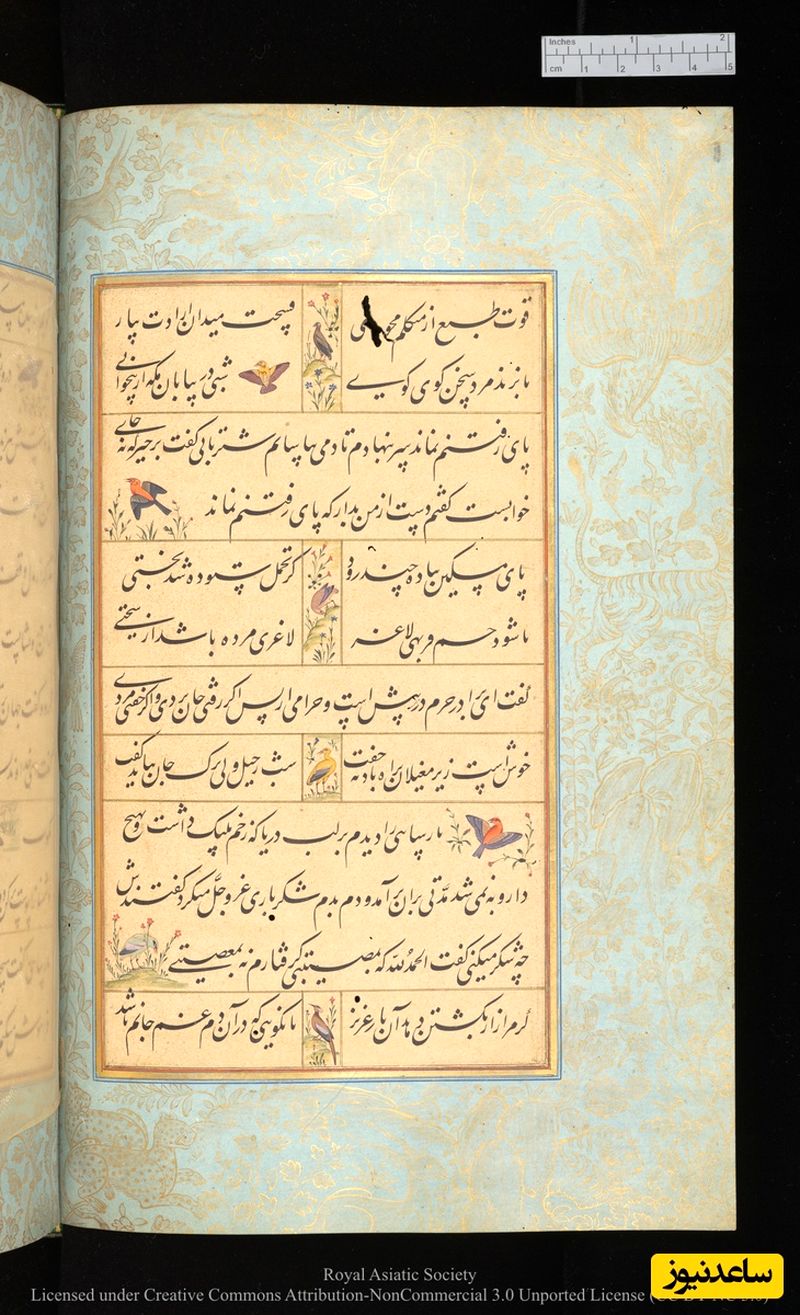 Inches 1 2
cm 1 2 3 4 5
قوت طبع از متکلم مجوی
فسحت میدان ارادت بیار
تا بزند مرد سخن گوی گویی
شبی در بیابان مکه از بیخوابی
پای رفتنم نماند سر نهادم تا دمی بیاسایم شتربانی گفت برخیز که نه جای
خوابست گفتم دست از من بدار که پای رفتنم نماند
پای مسکین پیاده چند رود
کز تحمل ستوده شد بختی
تا شود جسم فربهی لاغر
لاغری مرده باشد از سختی
گفت ای برادر حرم در پیش است و حرامی از پس اگر رفتی جان بردی و اگر خفتی مردی
خوش است زیر مغیلان براه بادیه خفت
شب رحیل ولی ترک جان بباید گفت
پارسایی را دیدم بر لب دریا که زخم پلنگ داشت و بهیچ
دارو به نمی شد مدتی بران برآمد و دم بدم شکر باری عز و جل میکرد گفتندش
چه شکر میکنی گفت الحمد لله که بمصیبتی گرفتارم نه بمعصیتی
گرم زار بکشتن دهد آن یار عزیز
تا نگویی که در آن دم غم جانم باشد
Royal Asiatic Society
Licensed under Creative Commons Attribution-NonCommercial 3.0 Unported License
ساعدنیوز